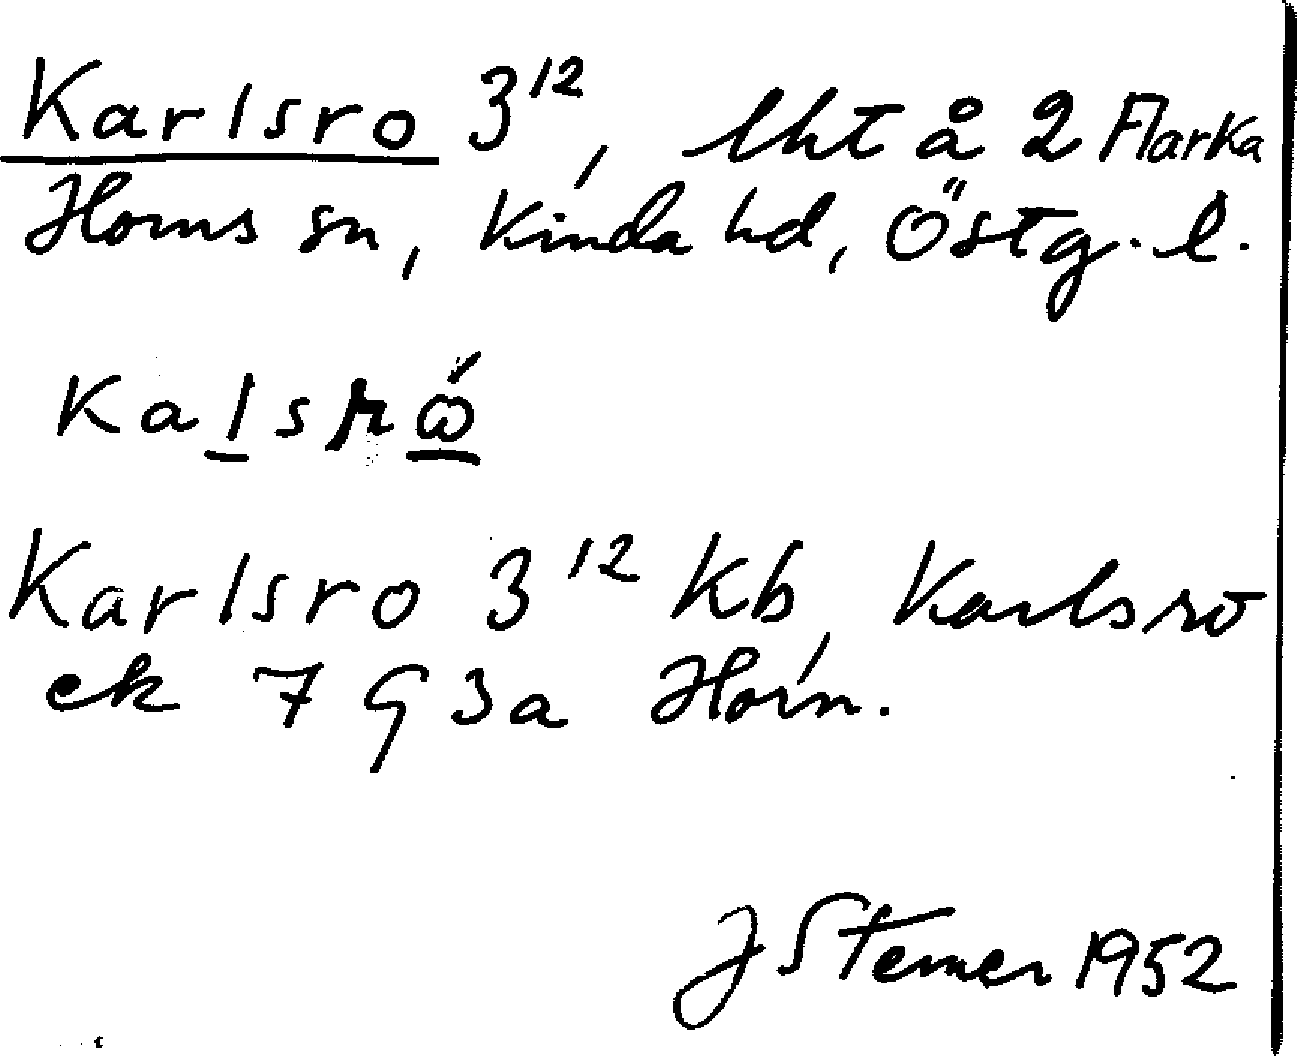 Karlsro 3¹², lht å 2 Flarka
Horns sn, Kinda hd, Östg. l.
Kalsrώ
Karlsro 3¹² Kb, Karlsro
ek 7 G 3a Horn.
J Sterner 1952